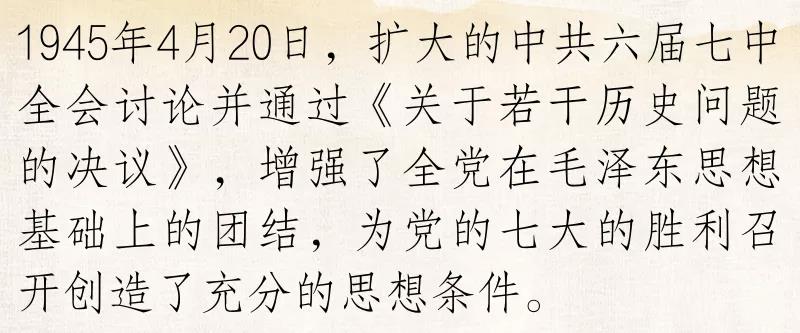 1945年4月20日，扩大的中共六届七中
全会讨论并通过《关于若干历史问题
的决议》，增强了全党在毛泽东思想
基础上的团结，为党的七大的胜利召
开创造了充分的思想条件。